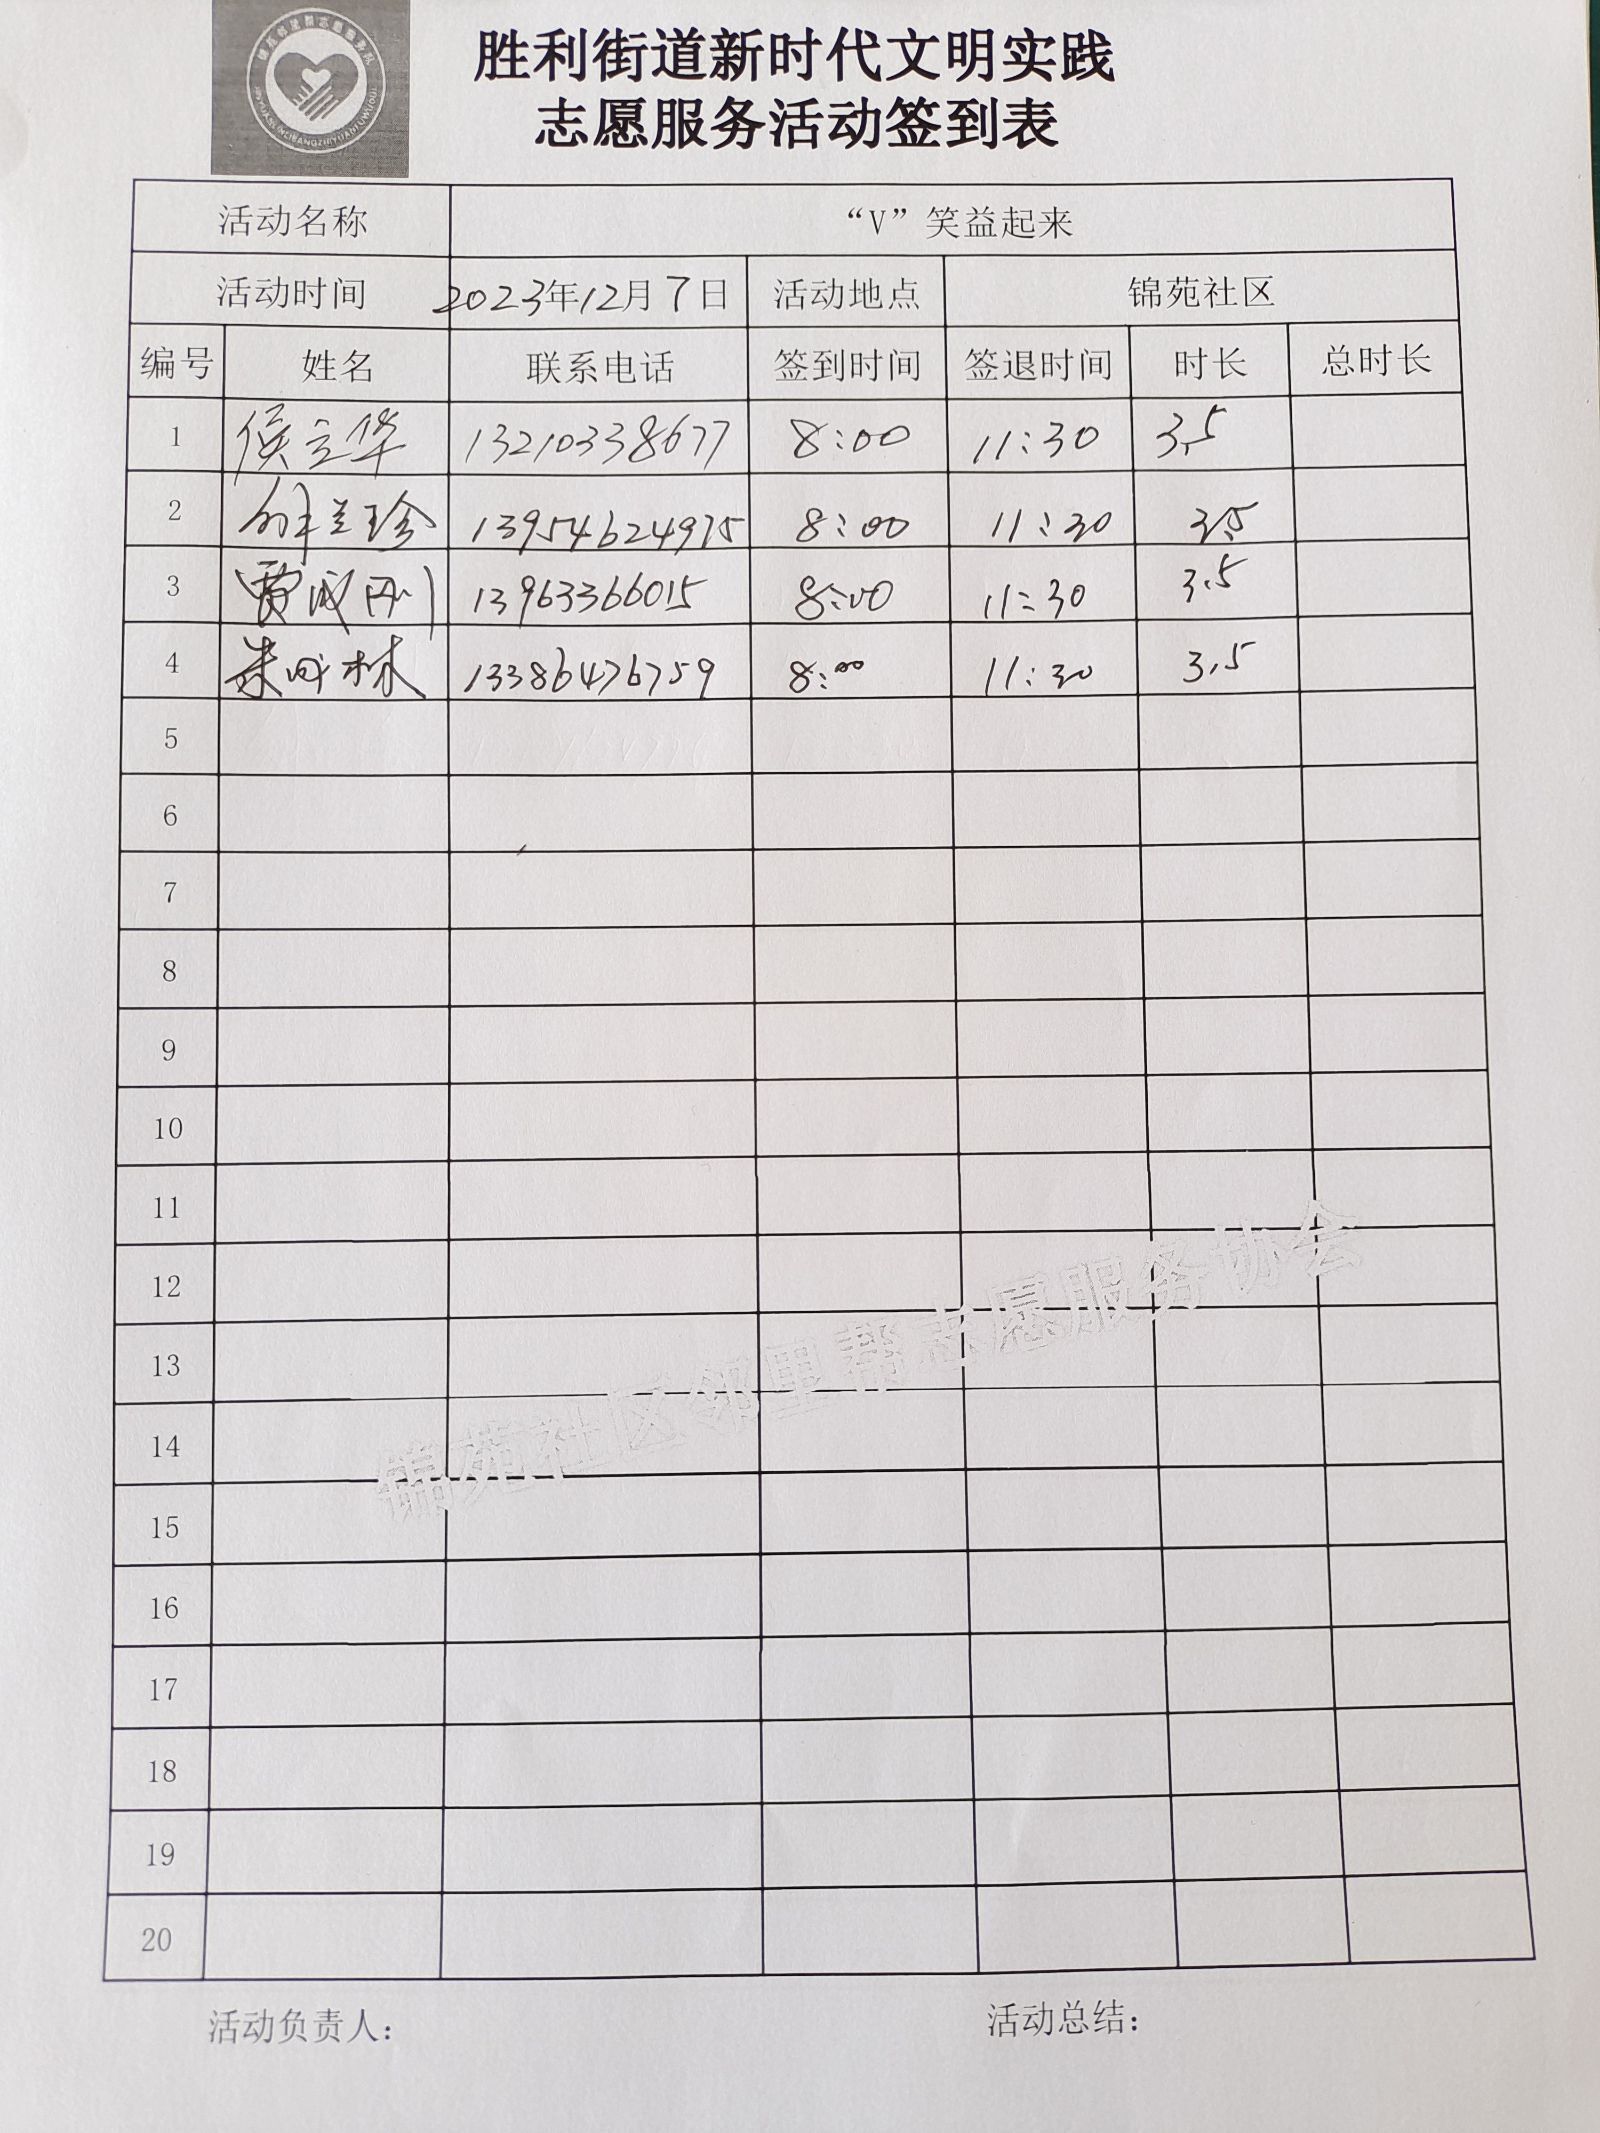 锦苑邻里帮志愿服务队
胜利街道新时代文明实践
志愿服务活动签到表
活动名称 “V”笑益起来
活动时间 2023年12月7日 活动地点 锦苑社区
编号 姓名 联系电话 签到时间 签退时间 时长 总时长
1 侯立华 13210338677 8:00 11:30 3.5
2 兰珍 13954624975 8:00 11:30 3.5
3 贾成刚 13963366015 8:00 11:30 3.5
4 朱成林 13386476759 8:00 11:30 3.5
5
6
7
8
9
10
11
12
13
14
15
16
17
18
19
20
锦苑社区邻里帮志愿服务协会
活动负责人： 活动总结：